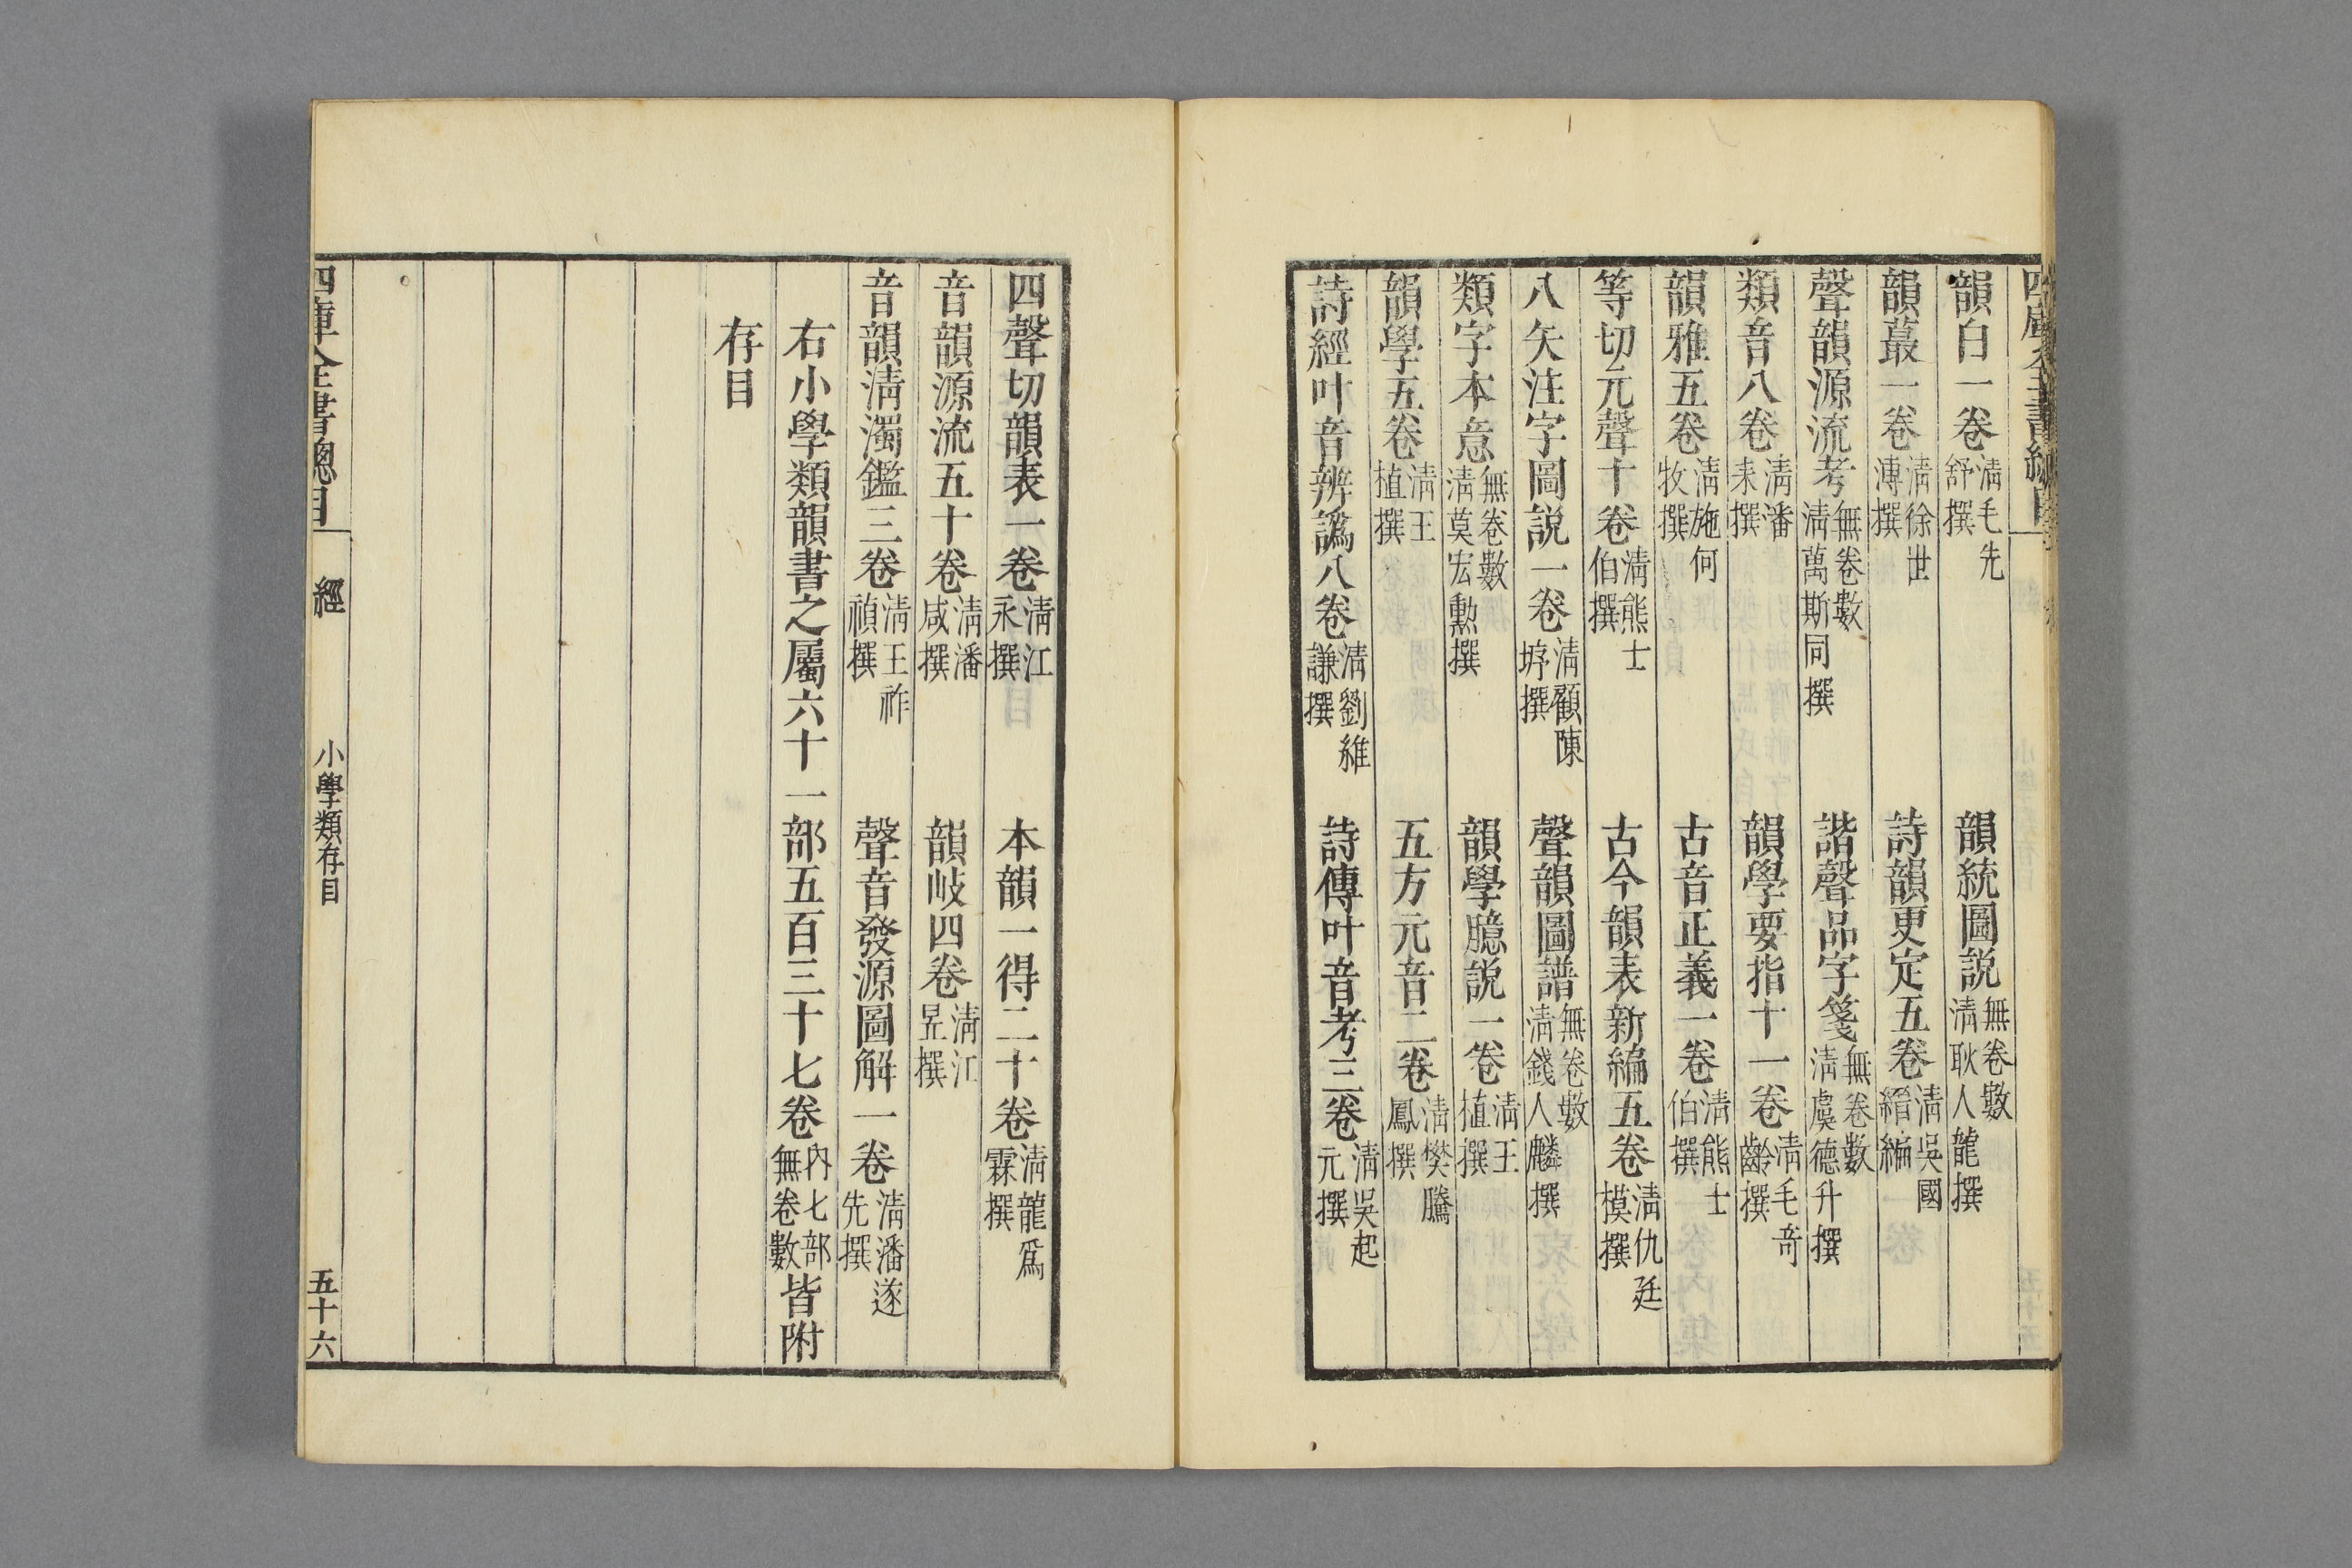 四庫全書總目
韻白一卷 清毛先舒撰 韻統圖説 無卷數清耿人龍撰
韻蕞一卷 清徐世溥撰 詩韻更定五卷 清吳國縉編
聲韻源流考 無卷數清萬斯同撰 諧聲品字箋 無卷數清虞德升撰
類音八卷 清潘耒撰 韻學要指十一卷 清毛奇齡撰
韻雅五卷 清施何牧撰 古音正義一卷 清熊士伯撰
等切元聲十卷 清熊士伯撰 古今韻表新編五卷 清仇廷模撰
八矢注字圖説一卷 清顧陳垿撰 聲韻圖譜 無卷數清錢人麟撰
類字本意 無卷數清莫宏勳撰 韻學臆説一卷 清王植撰
韻學五卷 清王植撰 五方元音二卷 清樊騰鳳撰
詩經叶音辨譌八卷 清劉維謙撰 詩傳叶音考三卷 清吳起元撰
四聲切韻表一卷 清江永撰 本韻一得二十卷 清龍爲霖撰
音韻源流五十卷 清潘咸撰 韻岐四卷 清江昱撰
音韻清濁鑑三卷 清王祚禎撰 聲音發源圖解一卷 清潘遂先撰
右小學類韻書之屬六十一部五百三十七卷 內七部無卷數 皆附
存目
四庫全書總目 經 小學類存目 五十六